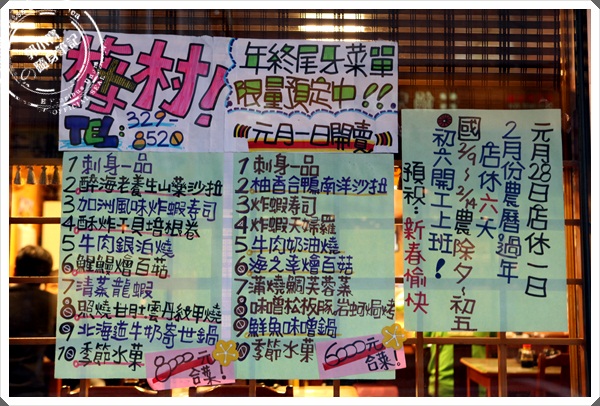 梅村!
TEL: 329-8520
年終尾牙菜單
限量預定中!!
元月一日開賣
1 刺身一品
2 醉海老養生山藥沙拉
3 加洲風味炸蝦壽司
4 酥炸干貝培根卷
5 牛肉銀泊燒
6 鯉鰻燴百菇
7 清蒸龍蝦
8 照燒甘旽雲丹紋甲燒
9 北海道牛奶寄世鍋
10 季節水菓
8000元
合菜!
1 刺身一品
2 柚香合鴨南洋沙拉
3 炸蝦壽司
4 炸蝦天婦羅
5 牛肉奶油燒
6 海之幸燴百菇
7 蒲燒鯛芙蓉蒸
8 味噌松板豚.岩蚵焗烤
9 鮮魚味噌鍋
10 季節水菓
6000元
合菜!
元月28日店休一日
2月份農曆過年
店休六天
國2/9~2/14農除夕~初五
初六開工上班!
預祝:新春愉快